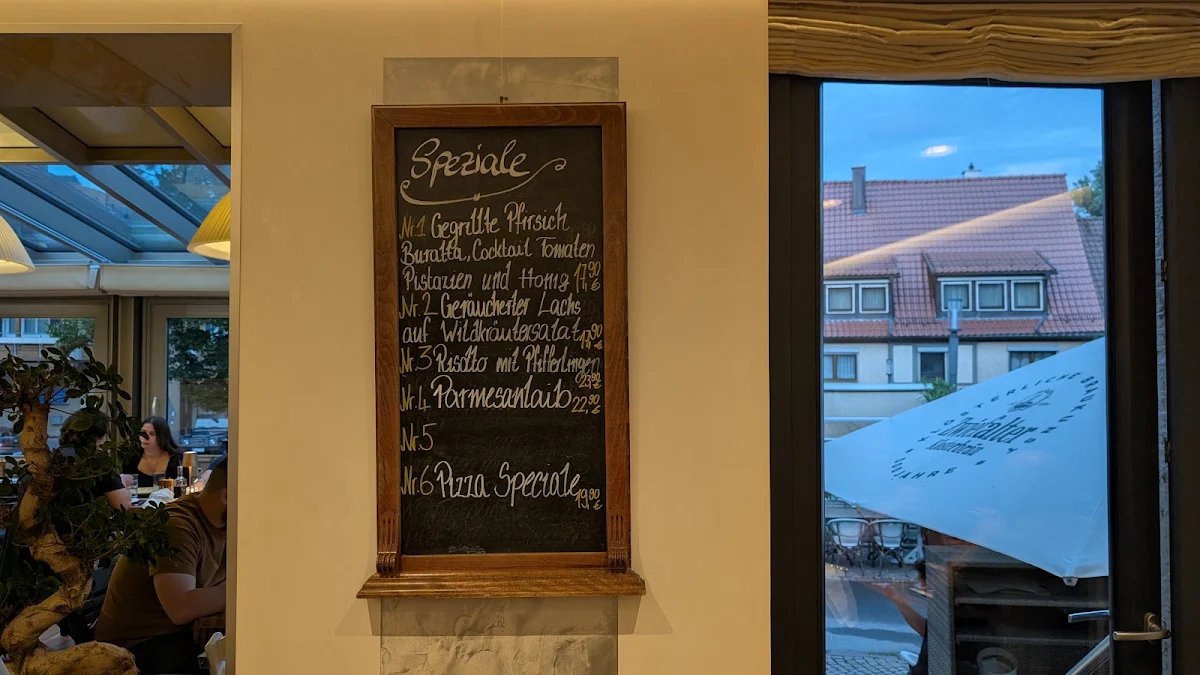 Speziale
Nr.1 Gegrillte Pfirsich
Buratta, Cocktail Tomaten
Pistazien und Honig 17,90 €
Nr.2 Geräucherter Lachs
auf Wildkräutersalat ,90 €
Nr.3 Risotto mit Pfifferlingen
23,90 €
Nr.4 Parmesanlaib 22,90 €
Nr.5
Nr.6 Pizza Speciale 19,90 €
Zwiefalter
Klosterbräu
JAHRE